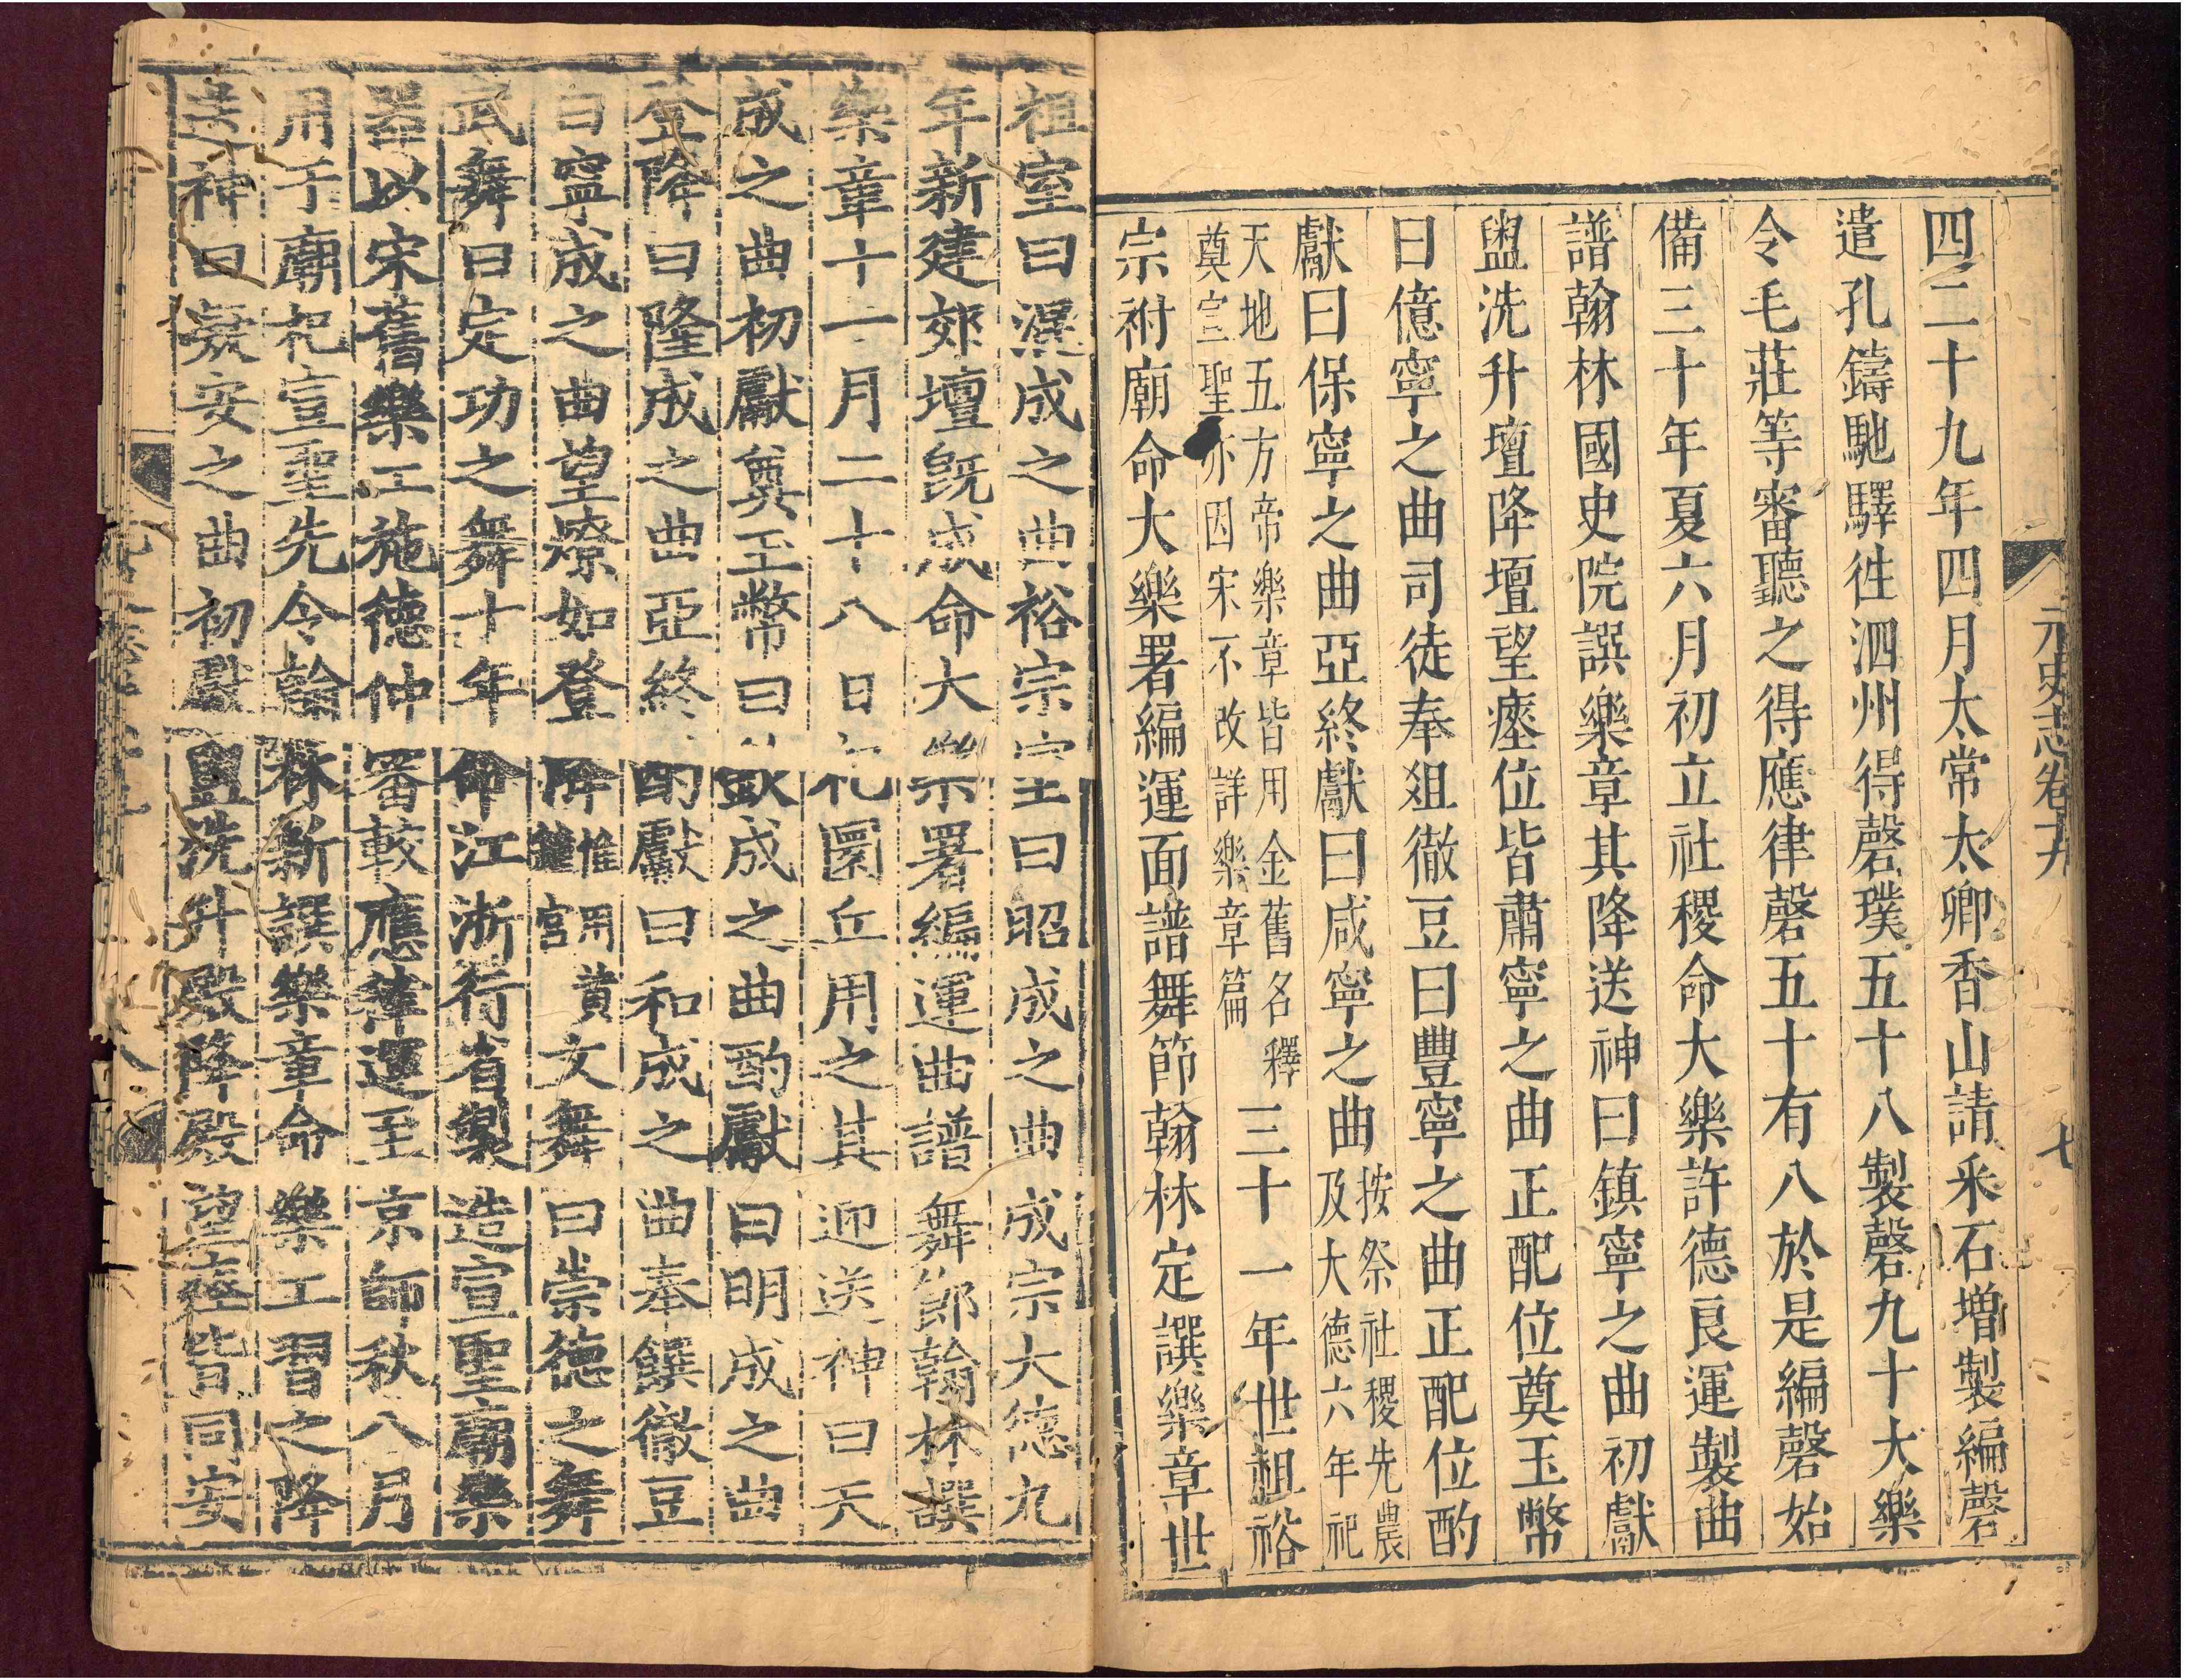 四二十九年四月太常太卿香山請采石増製編磬
遣孔鑄馳驛徃泗州得磬璞五十八製磬九十大樂
令毛莊等審聽之得應律磬五十有八於是編磬始
備三十年夏六月初立社稷命大樂許德良運製曲
譜翰林國史院譔樂章其降送神曰鎮寧之曲初獻
盥洗升壇降壇望瘞位皆肅寧之曲正配位奠玉幣
曰億寧之曲司徒奉爼徹豆曰豐寧之曲正配位酌
獻曰保寧之曲亞終獻曰咸寧之曲按祭社稷先農
及大德六年祀
天地五方帝樂章皆用金舊名釋
奠宣聖亦因宋不改詳樂章篇
三十一年世祖裕
宗祔廟命大樂署編運面譜舞節翰林定譔樂章世
祖室曰混成之曲裕宗室曰昭成之曲成宗大德九
年新建郊壇旣成命大樂署編運曲譜舞節翰林譔
樂章十一月二十八日祀圜丘用之其迎送神曰天
成之曲初獻奠玉幣曰欽成之曲酌獻曰明成之曲
登降曰隆成之曲亞終酌獻曰和成之曲奉饌徹豆
曰寧成之曲望燎如登降惟
鍾宮用黄文舞曰崇德之舞
武舞曰定功之舞十年命江浙行省製造宣聖廟樂
器以宋舊樂工施德仲審較應律運至京師秋八月
用于廟祀宣聖先令翰林新譔樂章命樂工習之降
送神曰凝安之曲初獻盥洗升殿降殿望瘞皆同安
元史志卷十九
七